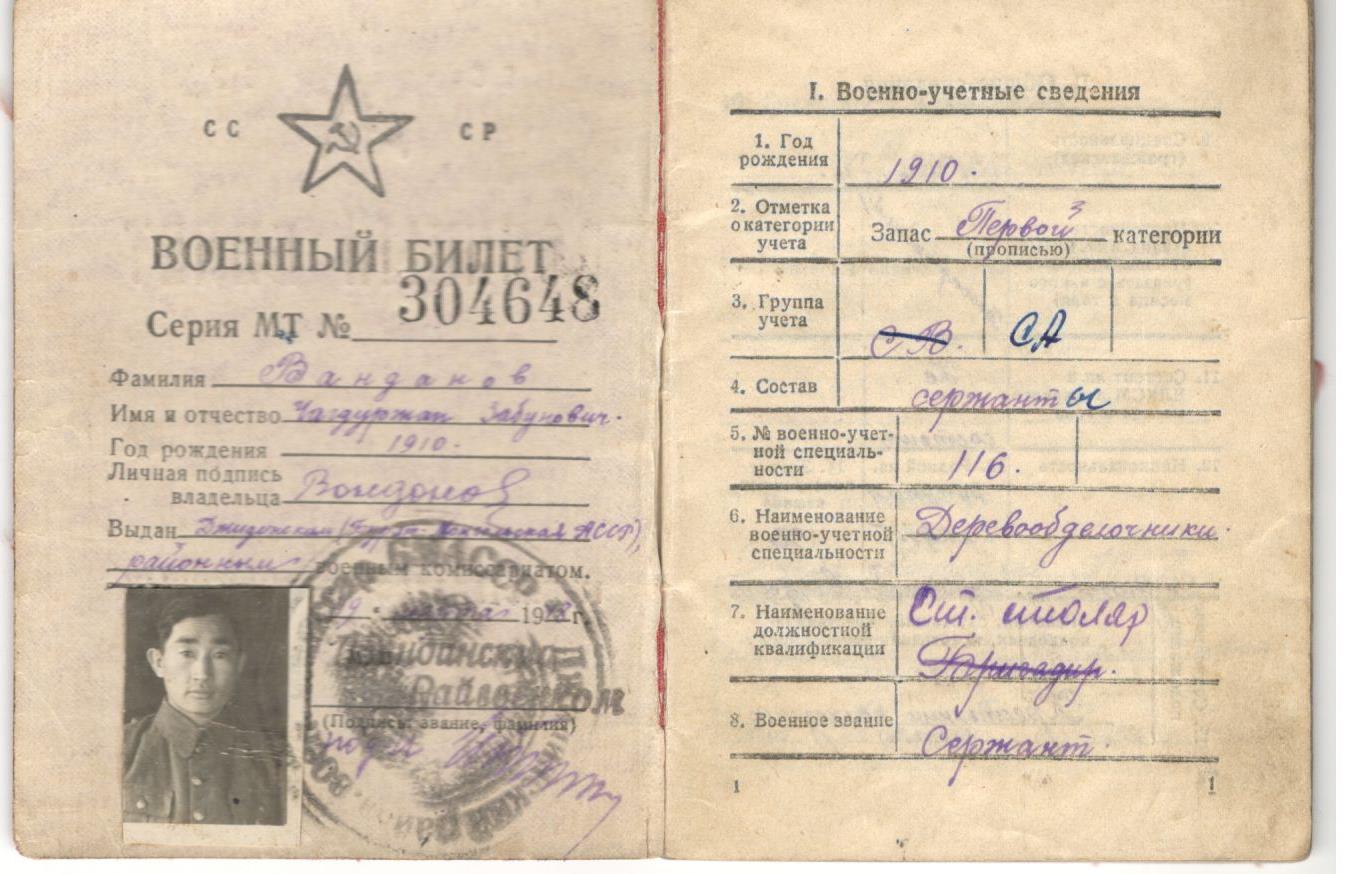 СС СР
ВОЕННЫЙ БИЛЕТ
304648
Серия МТ №
Фамилия Ванданов
Имя и отчество Чагдуржап Забунович.
Год рождения 1910.
Личная подпись
владельца Вондонов
Выдан Джидинским (Бурят-Монгольская АССР),
районным военным комиссариатом.
19 194 г.
Райвоенком
(Подпись, звание, фамилия)
I. Военно-учетные сведения
1. Год
рождения 1910.
2. Отметка
о категории
учета Запас Первой категории
(прописью)
3. Группа
учета СВ. СА
4. Состав сержанты
5. № военно-учет-
ной специаль-
ности 116.
6. Наименование
военно-учетной
специальности Деревообделочники.
7. Наименование
должностной
квалификации Ст. столяр
Бригадир.
8. Военное звание Сержант.
1 1